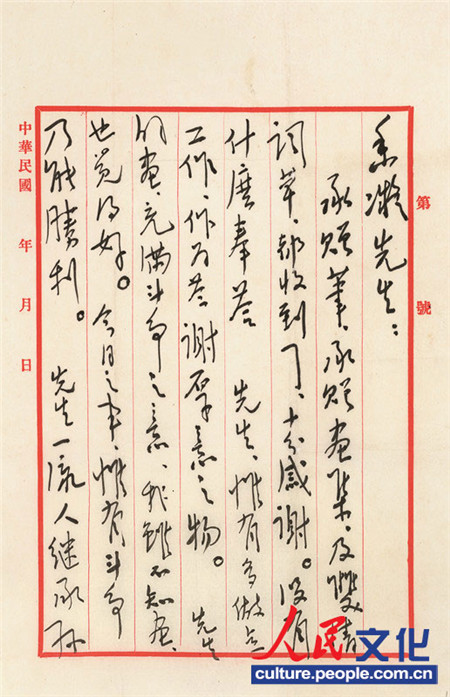 第 號
香凝先生：
承贈筆、承贈画集、及雙清
詞草、都收到了、十分感謝。没有
什麽奉答 先生、惟有多做点
工作、作为答謝厚意之物。 先生
的画、充满斗争之意、我雖不知画、
也觉得好。 今日之事、惟有斗争
乃能勝利。 先生一流人继承孙
中華民國 年 月 日
人民文化
culture.people.com.cn